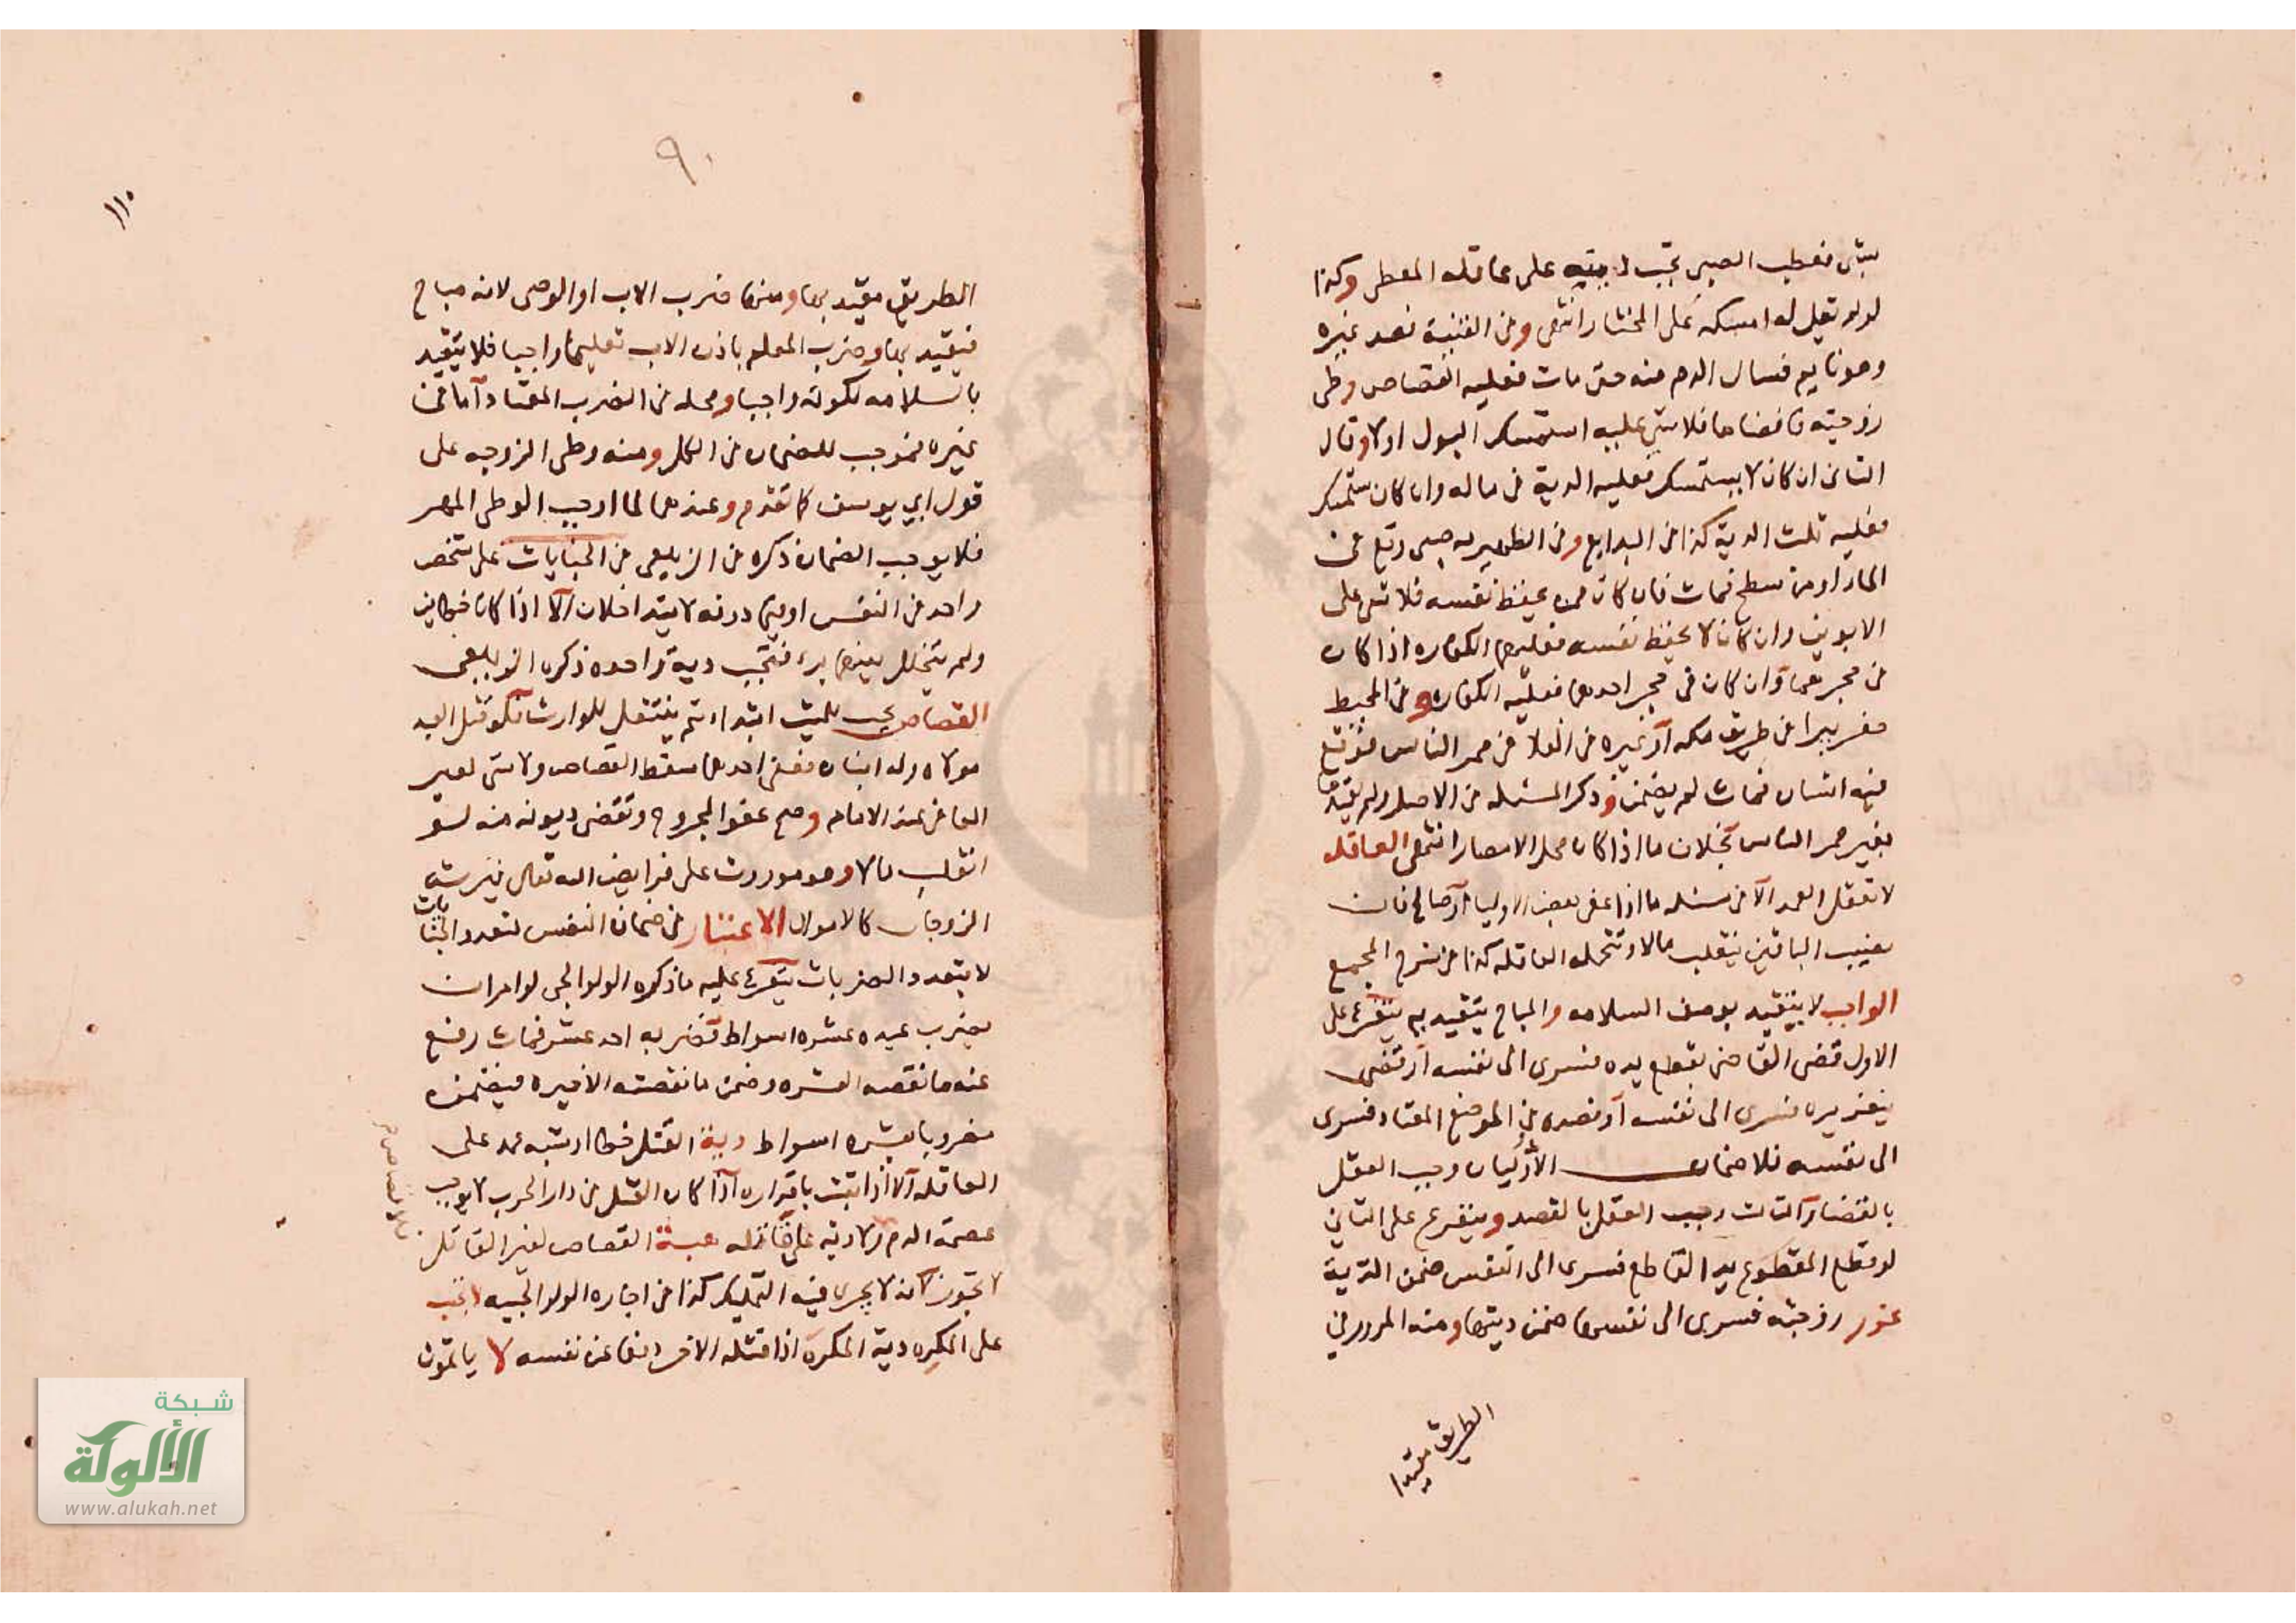 بشى فعطب الصبى تجب ديته على عاقلة المعطى وكذا
لو لم تقل له امسكه على المختار انتهى وفى القنية فصد غيره
وهو نايم فسال الدم منه حتى مات فعليه القصاص وطى
زوجته فافضاها فلا شى عليه استمسك البول او لا وقال
الثانى ان كان لا يستمسك فعليه الدية فى ماله وان كان يستمسك
فعليه ثلث الدية كذا فى البدايع وفى الظهيريه صبى وقع فى
الماء او من سطح فمات فان كان ممن يحفظ نفسه فلا شى على
الابوين وان كان لا يحفظ نفسه فعليهما الكفاره اذا كان
فى حجرهما وان كان فى حجر احدهما فعليه الكفاره وفى المحيط
حفر بيرا فى طريق مكه او غيره من الفلا فى ممر الناس فوقع
فيه انسان فمات لم يضمن وذكر المسئله فى الاصل ولم يقيدها
بغير ممر الناس بخلاف ما اذا كان محل الامصار انتهى العاقله
لا تعقل العمد الا فى مسئله ما اذا عفى بعض الاوليا او صالح فان
نصيب الباقين ينقلب مالا وتتحمله العاقله كذا فى شرح المجمع
الواجب لا يتقيد بوصف السلامه والمباح يتقيد به يتفرع على
الاول قضى القاضى بقطع يده فسرى الى نفسه او قضى
بتعزيره فسرى الى نفسه او فصده فى الموضع المعتاد فسرى
الى نفسه فلا ضمان الاوليان وجب العقل
بالقضا والثالث وجب العقل بالقصد ويتفرع على الثانى
لو قطع المقطوع يد القاطع فسرى الى النفس ضمن الدية
عزر زوجته فسرى الى نفسها ضمن ديتها ومنه المرور فى
الطريق مقيدا
٩٠
١١٠
الطريق مقيد بها ومنها ضرب الاب او الوصى لانه مباح
فيتقيد بها وضرب المعلم باذن الاب تعليما واجبا فلا يتقيد
بالسلامه لكونه واجبا ومحله فى الضرب المعتاد اما فى
غيره فموجب للضمان فى الكل ومنه وطى الزوجه على
قول ابي يوسف كما تقدم وعندهما لما اوجب الوطى المهر
فلا يوجب الضمان ذكره فى الزيلعى من الجنايات على شخص
واحد فى النفس او فيما دونه لا يتداخلان الا اذا كانا خطاين
ولم يتخلل بينهما برء فتجب دية واحده ذكره الزيلعى
القصاص يجب للميت ابتداء ثم ينتقل للوارث فلو قتل العبد
مولاه وله ابنان فعفى احدهما سقط القصاص ولا شى لغير
العافى عند الامام وصح عفو المجروح وتقضى ديونه منه لو
انقلب مالا وهو موروث على فرايض الله تعالى فيرث
الزوجان كالاموال الاعتبار فى ضمان النفس لتعدد الجنايات
لا بتعدد الضربات يتفرع عليه ما ذكره الولوالجى لو امر ان
يضرب عبده عشره اسواط فضربه احد عشر فمات رفع
عنه ما نقصه العشره وضمن ما نقصته الاخيره فيضمنه
مضروبا بعشره اسواط دية القتل خطا او شبه عمد على
العاقله الا اذا ثبت باقراره اذا كان القتل فى دار الحرب لا يوجب
عصمة الدم ولا ديه على قاتله هبة القصاص لغير القاتل
لا تجوز لانه لا يجرى فيه التمليك كذا فى اجاره الولوالجيه لا تجب
على المكره دية المكره اذا قتله الاخر دفعا عن نفسه لا ياثم
شبكة
الألوكة
www.alukah.net